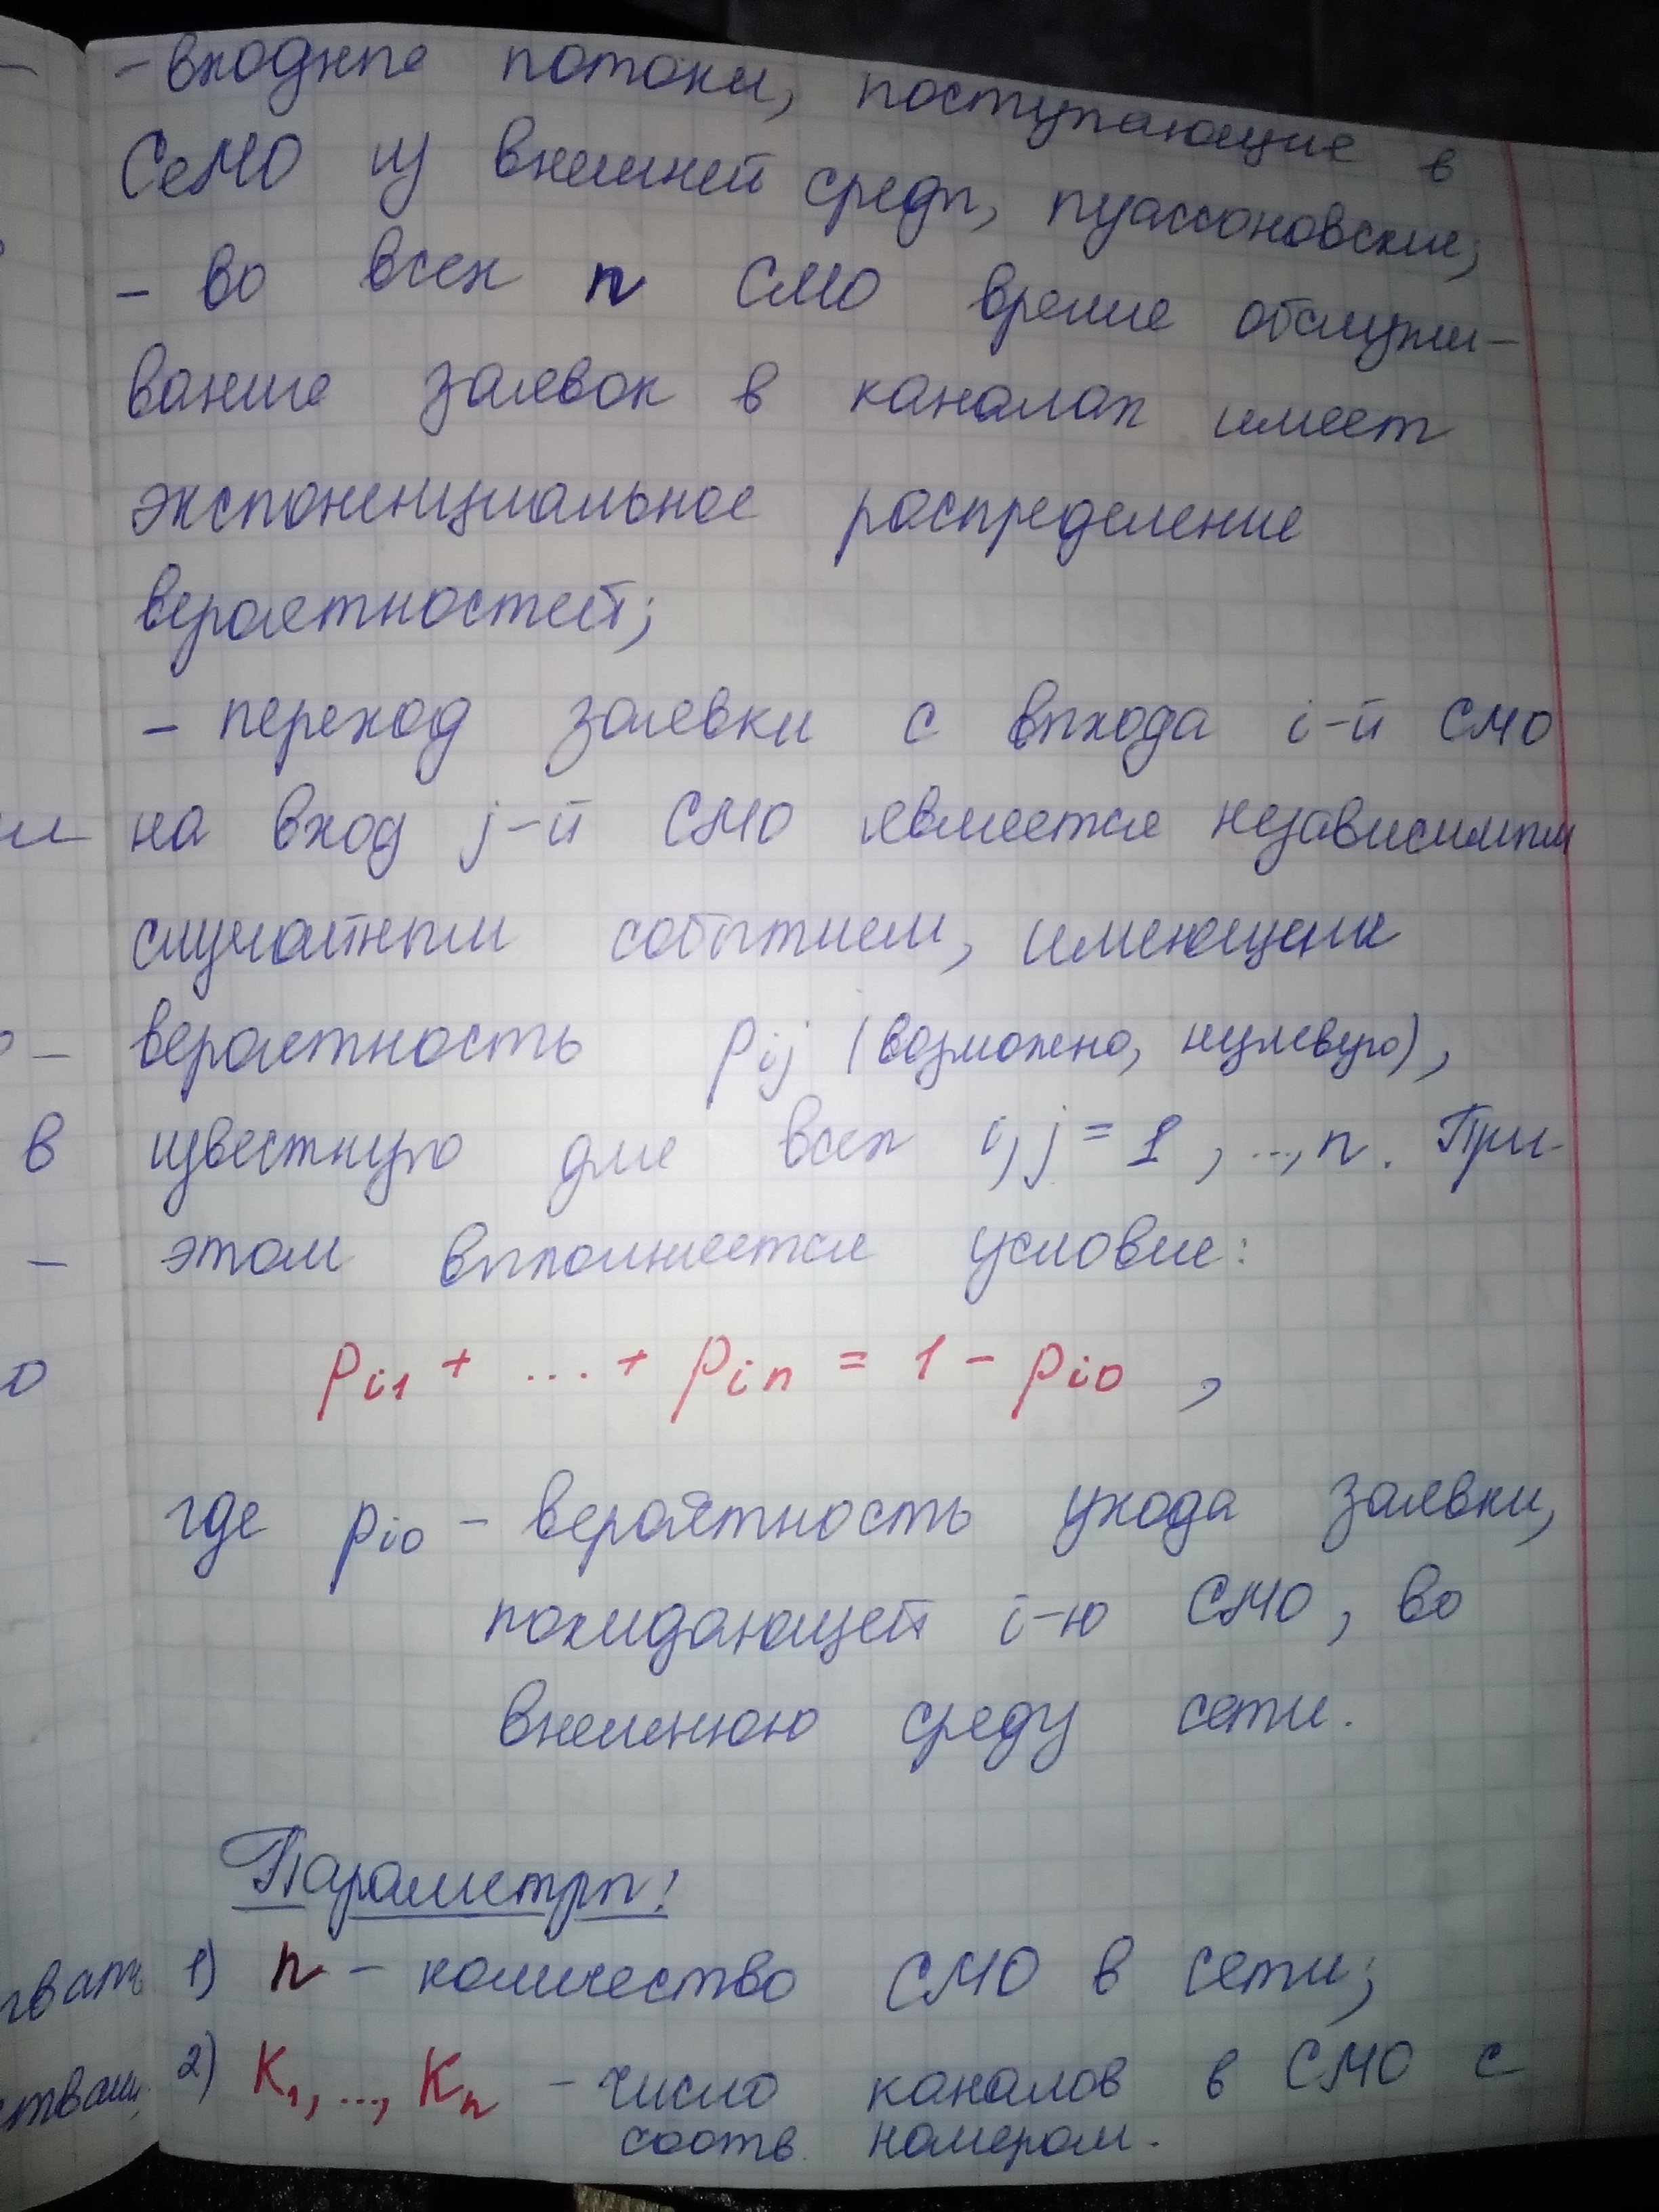 - входные потоки, поступающие в
СеМО из внешней среды, пуассоновские;
- во всех n СМО время обслужи-
вания заявок в каналах имеет
экспоненциальное распределение
вероятностей;
- переход заявки с выхода i-й СМО
на вход j-й СМО является независимым
случайным событием, имеющим
вероятность pij (возможно, нулевую),
известную для всех i, j = 1, ..., n. При
этом выполняется условие:
pi1 + ... + pin = 1 - pi0 ,
где pi0 - вероятность ухода заявки,
покидающей i-ю СМО, во
внешнюю среду сети.
Параметры:
1) n - количество СМО в сети;
2) K1, ..., Kn - число каналов в СМО с
соотв. номером.